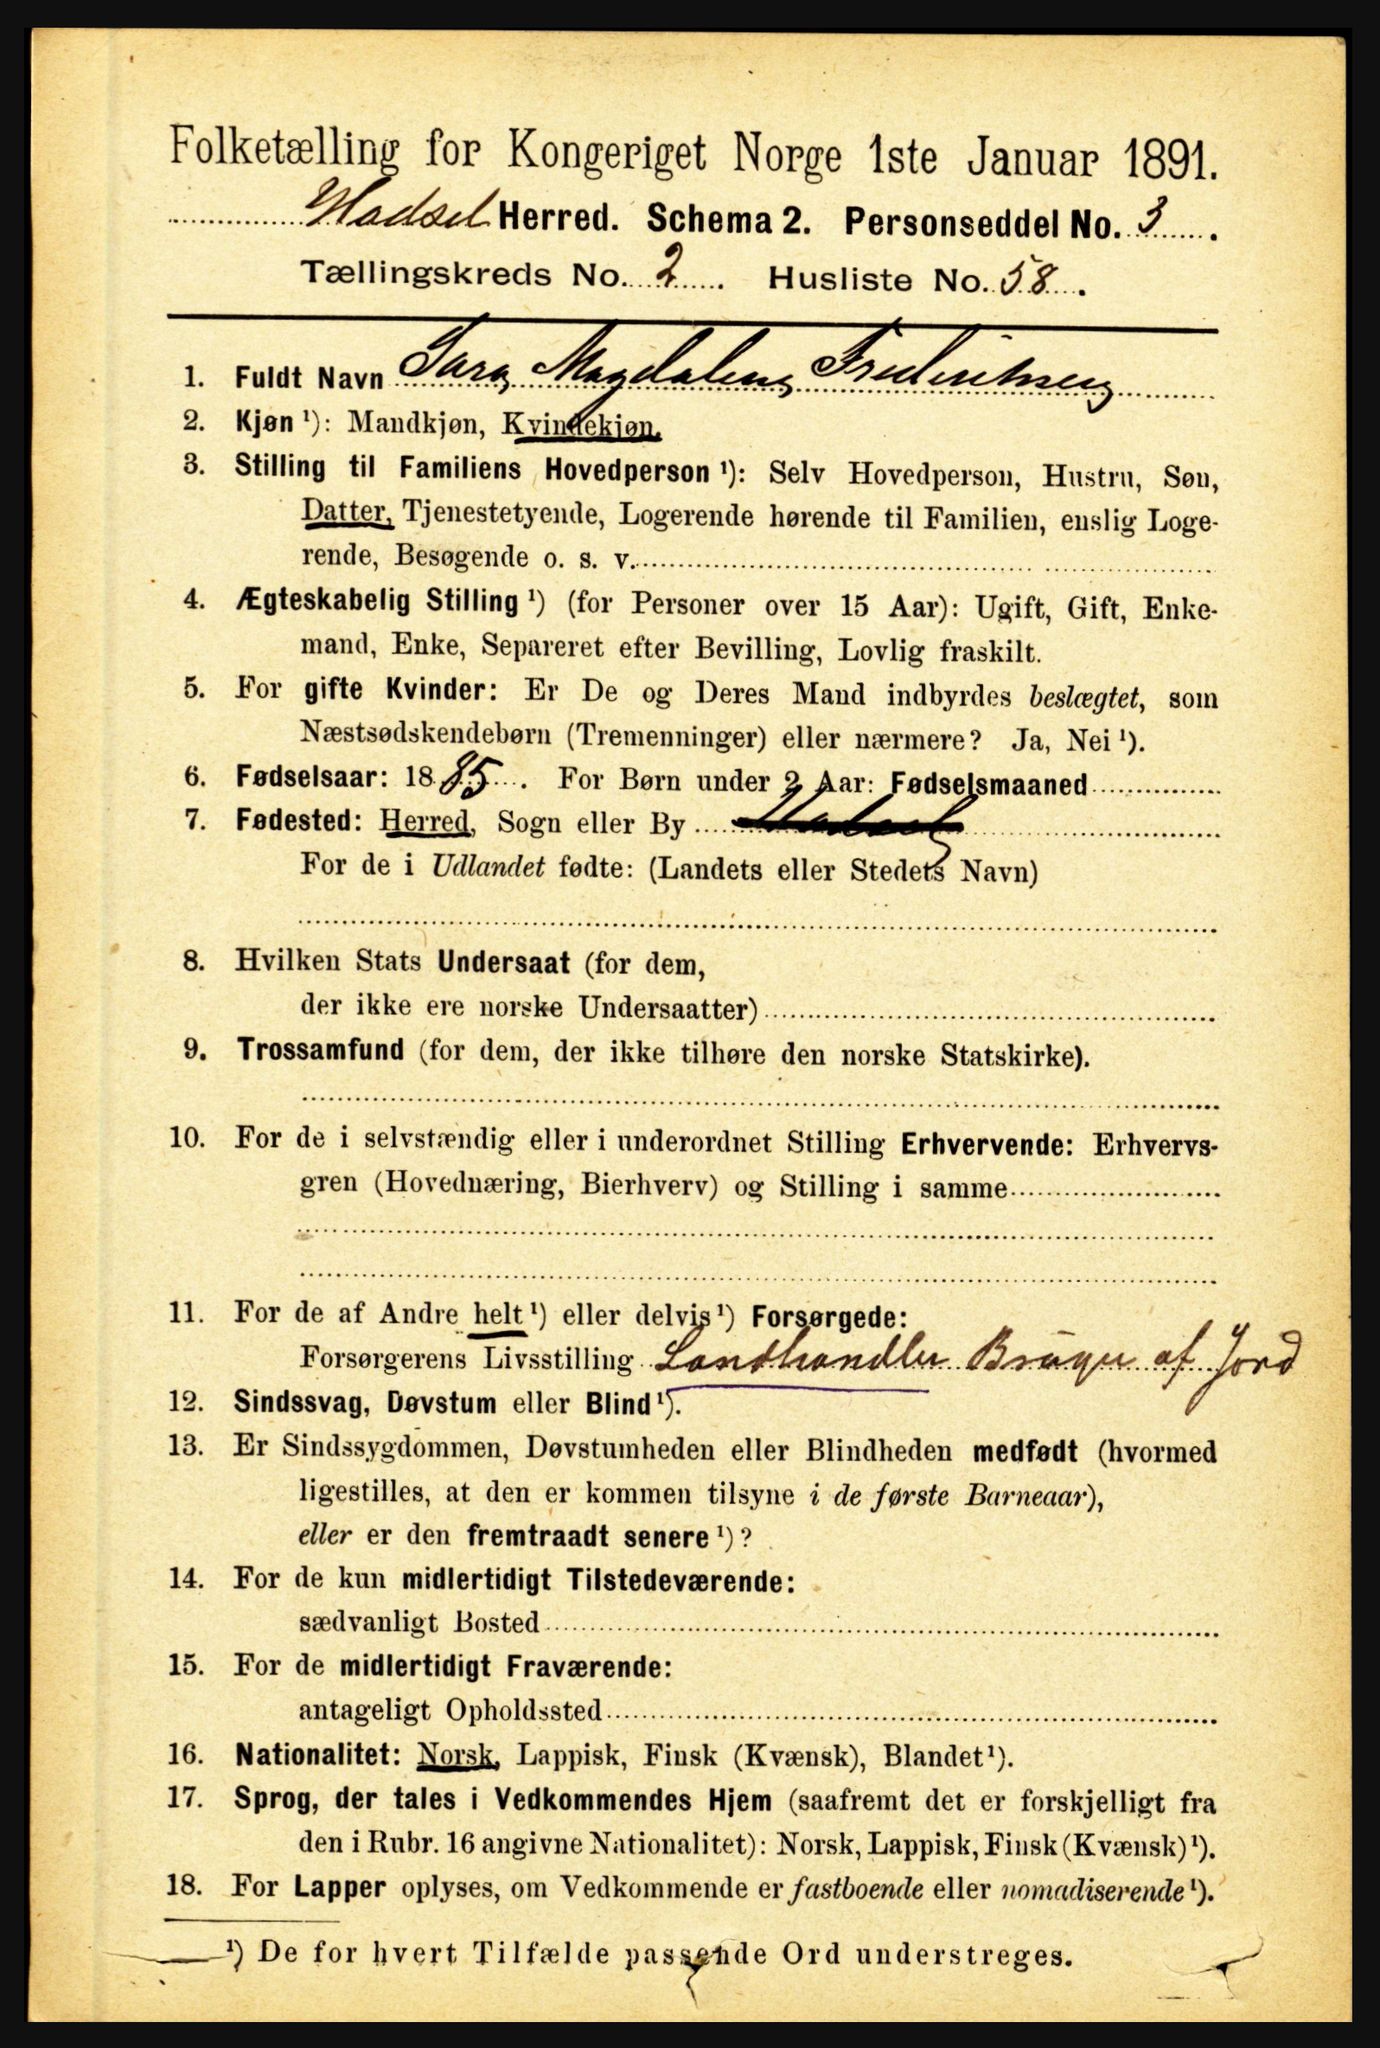 Folketælling for Kongeriget Norge 1ste Januar 1891.
Hadsel Herred. Schema 2. Personseddel No. 3.
Tællingskreds No. 2. Husliste No. 58.
1. Fuldt Navn Sara Magdalena Frederiksen
2. Kjøn ¹): Mandkjøn, Kvindekjøn.
3. Stilling til Familiens Hovedperson ¹): Selv Hovedperson, Hustru, Søn,
Datter, Tjenestetyende, Logerende hørende til Familien, enslig Loge-
rende, Besøgende o. s. v.
4. Ægteskabelig Stilling ¹) (for Personer over 15 Aar): Ugift, Gift, Enke-
mand, Enke, Separeret efter Bevilling, Lovlig fraskilt.
5. For gifte Kvinder: Er De og Deres Mand indbyrdes beslægtet, som
Næstsødskendebørn (Tremenninger) eller nærmere? Ja, Nei ¹).
6. Fødselsaar: 1885. For Børn under 2 Aar: Fødselsmaaned
7. Fødested: Herred, Sogn eller By Hadsel
For de i Udlandet fødte: (Landets eller Stedets Navn)
8. Hvilken Stats Undersaat (for dem,
der ikke ere norske Undersaatter)
9. Trossamfund (for dem, der ikke tilhøre den norske Statskirke).
10. For de i selvstændig eller i underordnet Stilling Erhvervende: Erhvervs-
gren (Hovednæring, Bierhverv) og Stilling i samme
11. For de af Andre helt ¹) eller delvis ¹) Forsørgede:
Forsørgerens Livsstilling Landhandler Brüger af Jord
12. Sindssvag, Døvstum eller Blind ¹).
13. Er Sindssygdommen, Døvstumheden eller Blindheden medfødt (hvormed
ligestilles, at den er kommen tilsyne i de første Barneaar),
eller er den fremtraadt senere ¹)?
14. For de kun midlertidigt Tilstedeværende:
sædvanligt Bosted
15. For de midlertidigt Fraværende:
antageligt Opholdssted
16. Nationalitet: Norsk, Lappisk, Finsk (Kvænsk), Blandet ¹).
17. Sprog, der tales i Vedkommendes Hjem (saafremt det er forskjelligt fra
den i Rubr. 16 angivne Nationalitet): Norsk, Lappisk, Finsk (Kvænsk) ¹).
18. For Lapper oplyses, om Vedkommende er fastboende eller nomadiserende ¹).
¹) De for hvert Tilfælde passende Ord understreges.